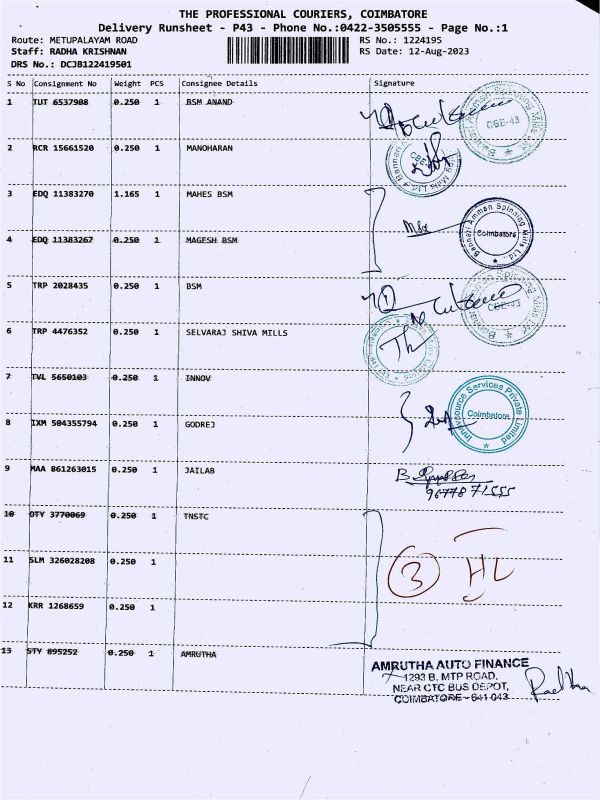 THE PROFESSIONAL COURIERS, COIMBATORE
Delivery Runsheet - P43 - Phone No.:0422-3505555 - Page No.:1
Route: METUPALAYAM ROAD RS No.: 1224195
Staff: RADHA KRISHNAN RS Date: 12-Aug-2023
DRS No.: DCJB122419501
S No Consignment No Weight PCS Consignee Details Signature
1 TUT 6537908 0.250 1 BSM ANAND
Bannari Amman Spinning Mills Ltd.
CBE-43
2 RCR 15661520 0.250 1 MANOHARAN
3 EDQ 11383270 1.165 1 MAHES BSM
Bannari Amman Spinning Mills Ltd.
Coimbatore
4 EDQ 11383267 0.250 1 MAGESH BSM
5 TRP 2028435 0.250 1 BSM
CBE-43
6 TRP 4476352 0.250 1 SELVARAJ SHIVA MILLS
7 TVL 5650103 0.250 1 INNOV
Innovsource Services Private Limited
Coimbatore
8 IXM 504355794 0.250 1 GODREJ
9 MAA 861263015 0.250 1 JAILAB
9677871555
10 OTY 3770069 0.250 1 TNSTC
11 SLM 326028208 0.250 1
3 HL
12 KRR 1268659 0.250 1
13 STY 895252 0.250 1 AMRUTHA
AMRUTHA AUTO FINANCE
1293 B, MTP ROAD,
NEAR CTC BUS DEPOT,
COIMBATORE - 641 043